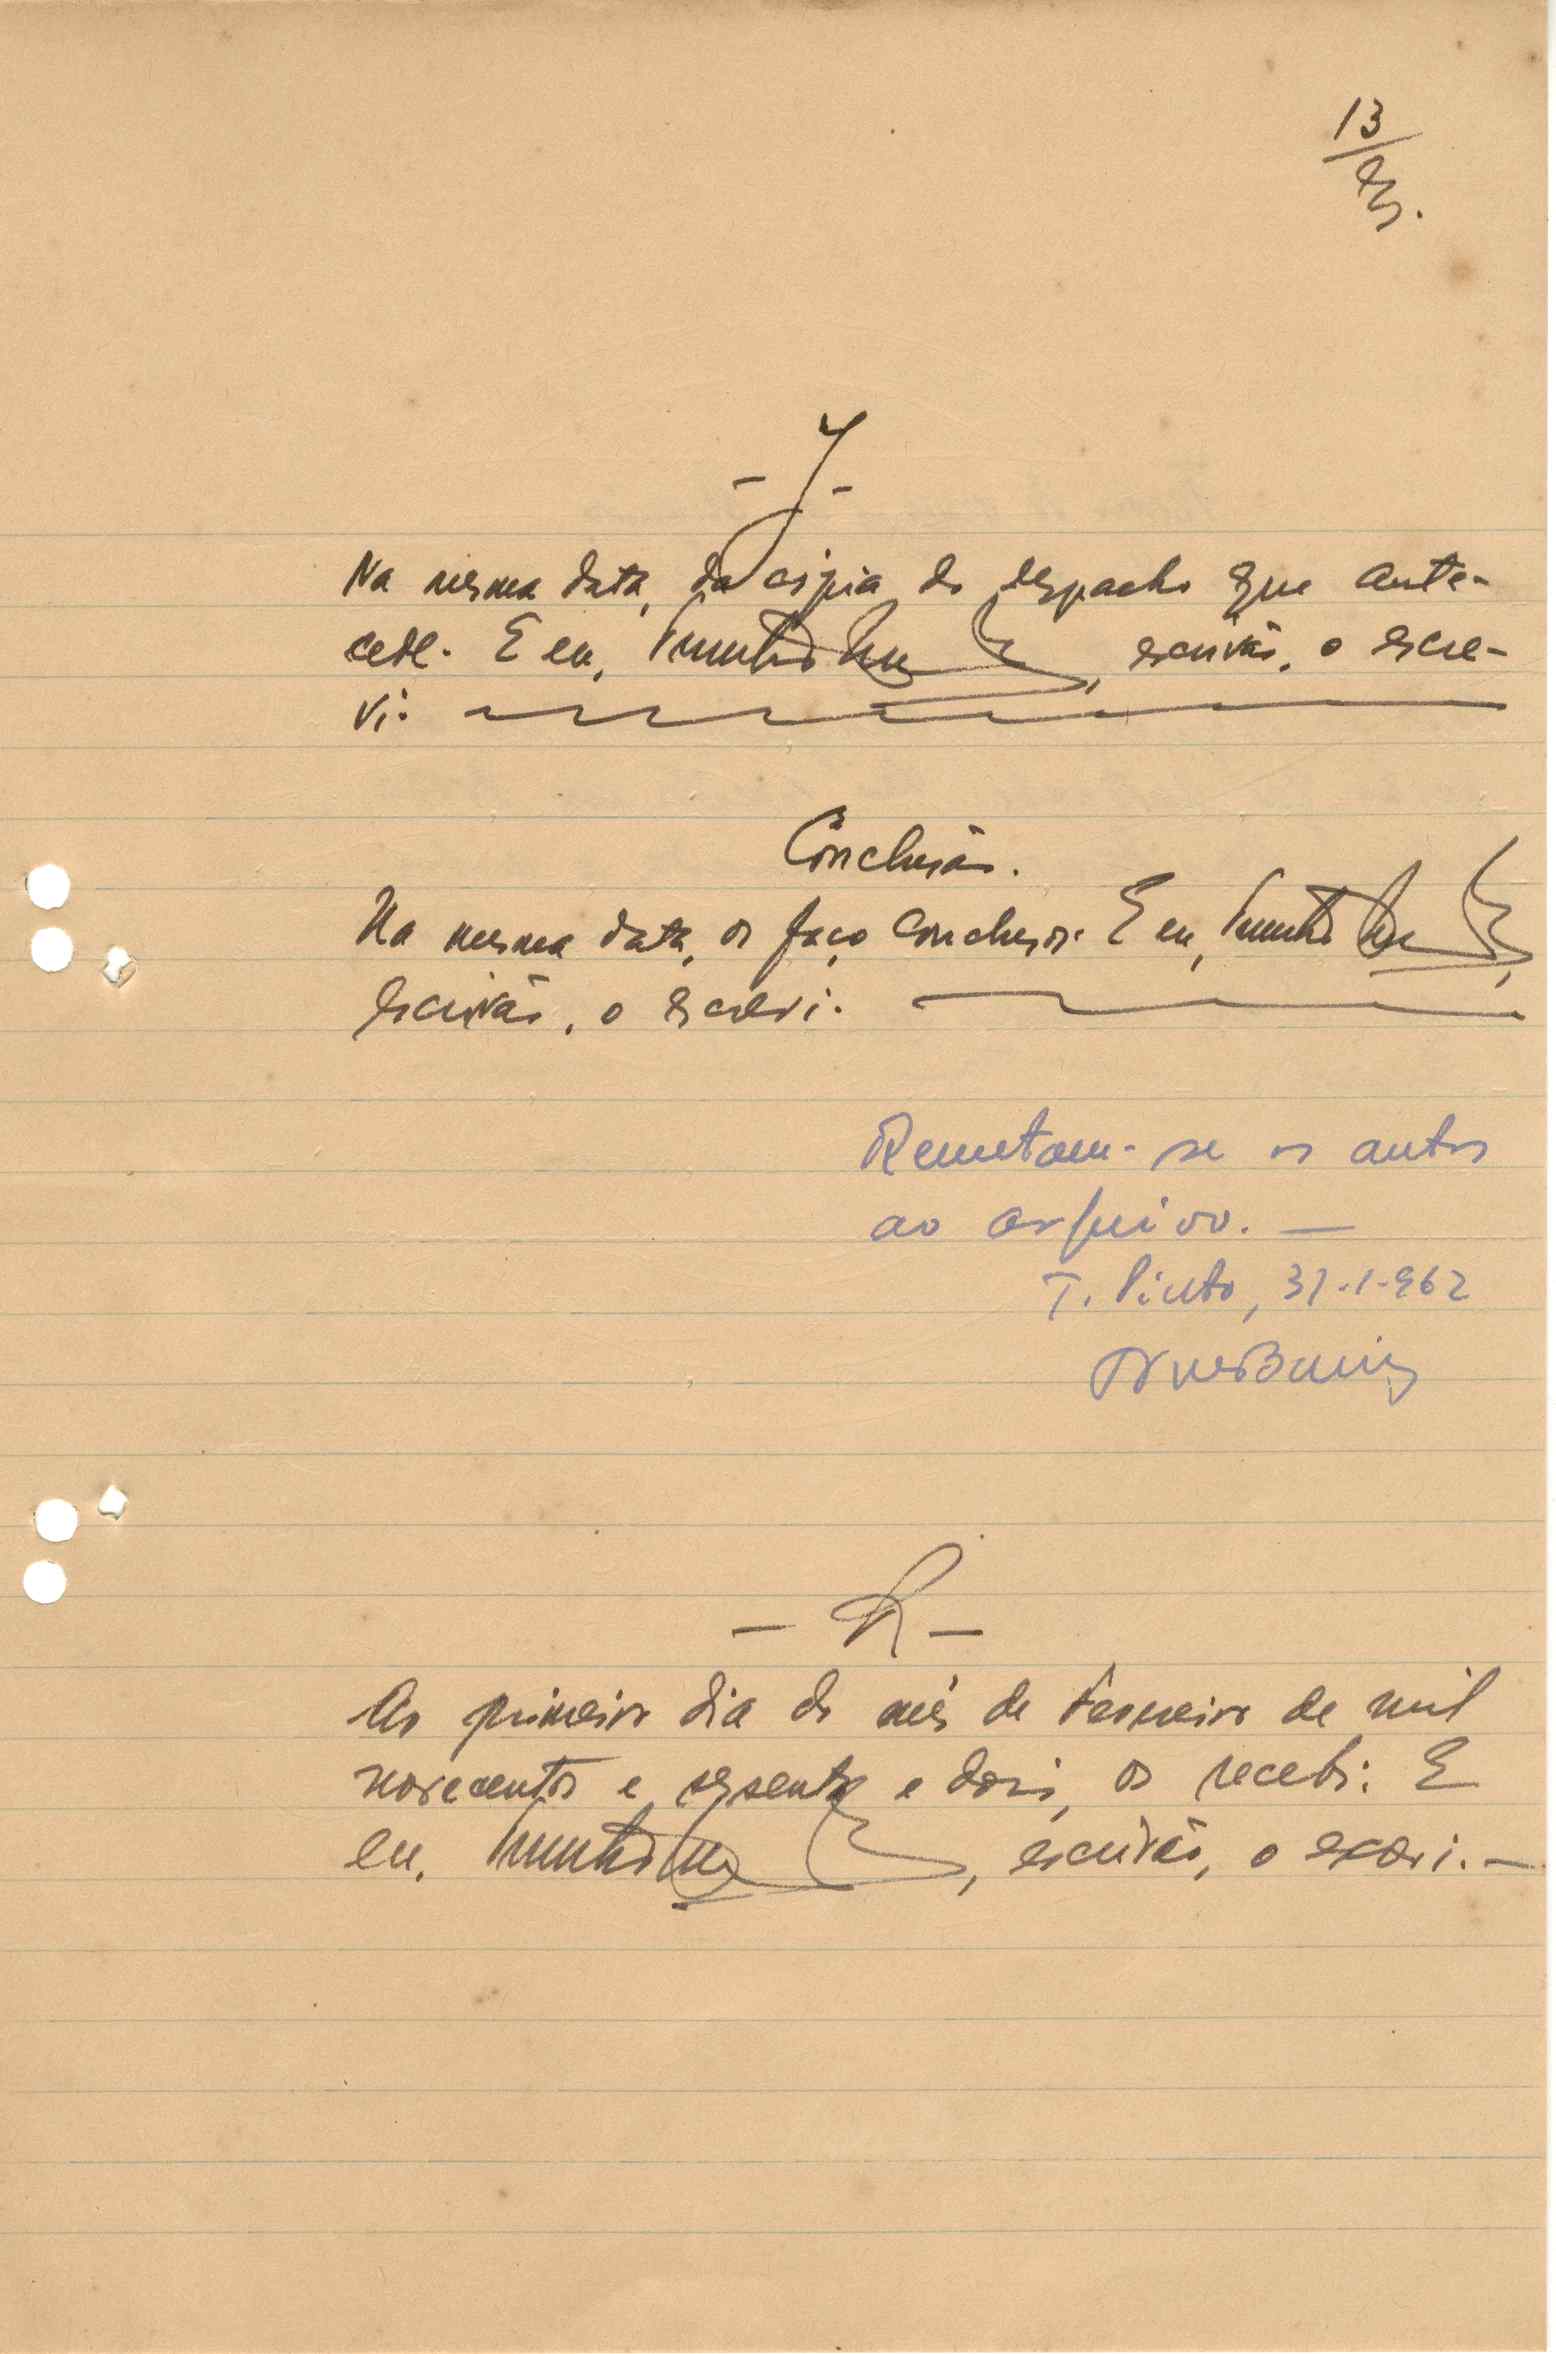 13
- J -
Na mesma data, da cópia do despacho que ante-
cede. E eu, escrivão, o escre-
vi.
Conclusão.
Na mesma data, os faço conclusos. E eu,
escrivão, o escrevi.
Remetam-se os autos
ao arquivo. —
T. Pinto, 31-1-962
- R -
Ao primeiro dia do mês de fevereiro de mil
novecentos e sessenta e dois, os recebi. E
eu, escrivão, o escrevi. —